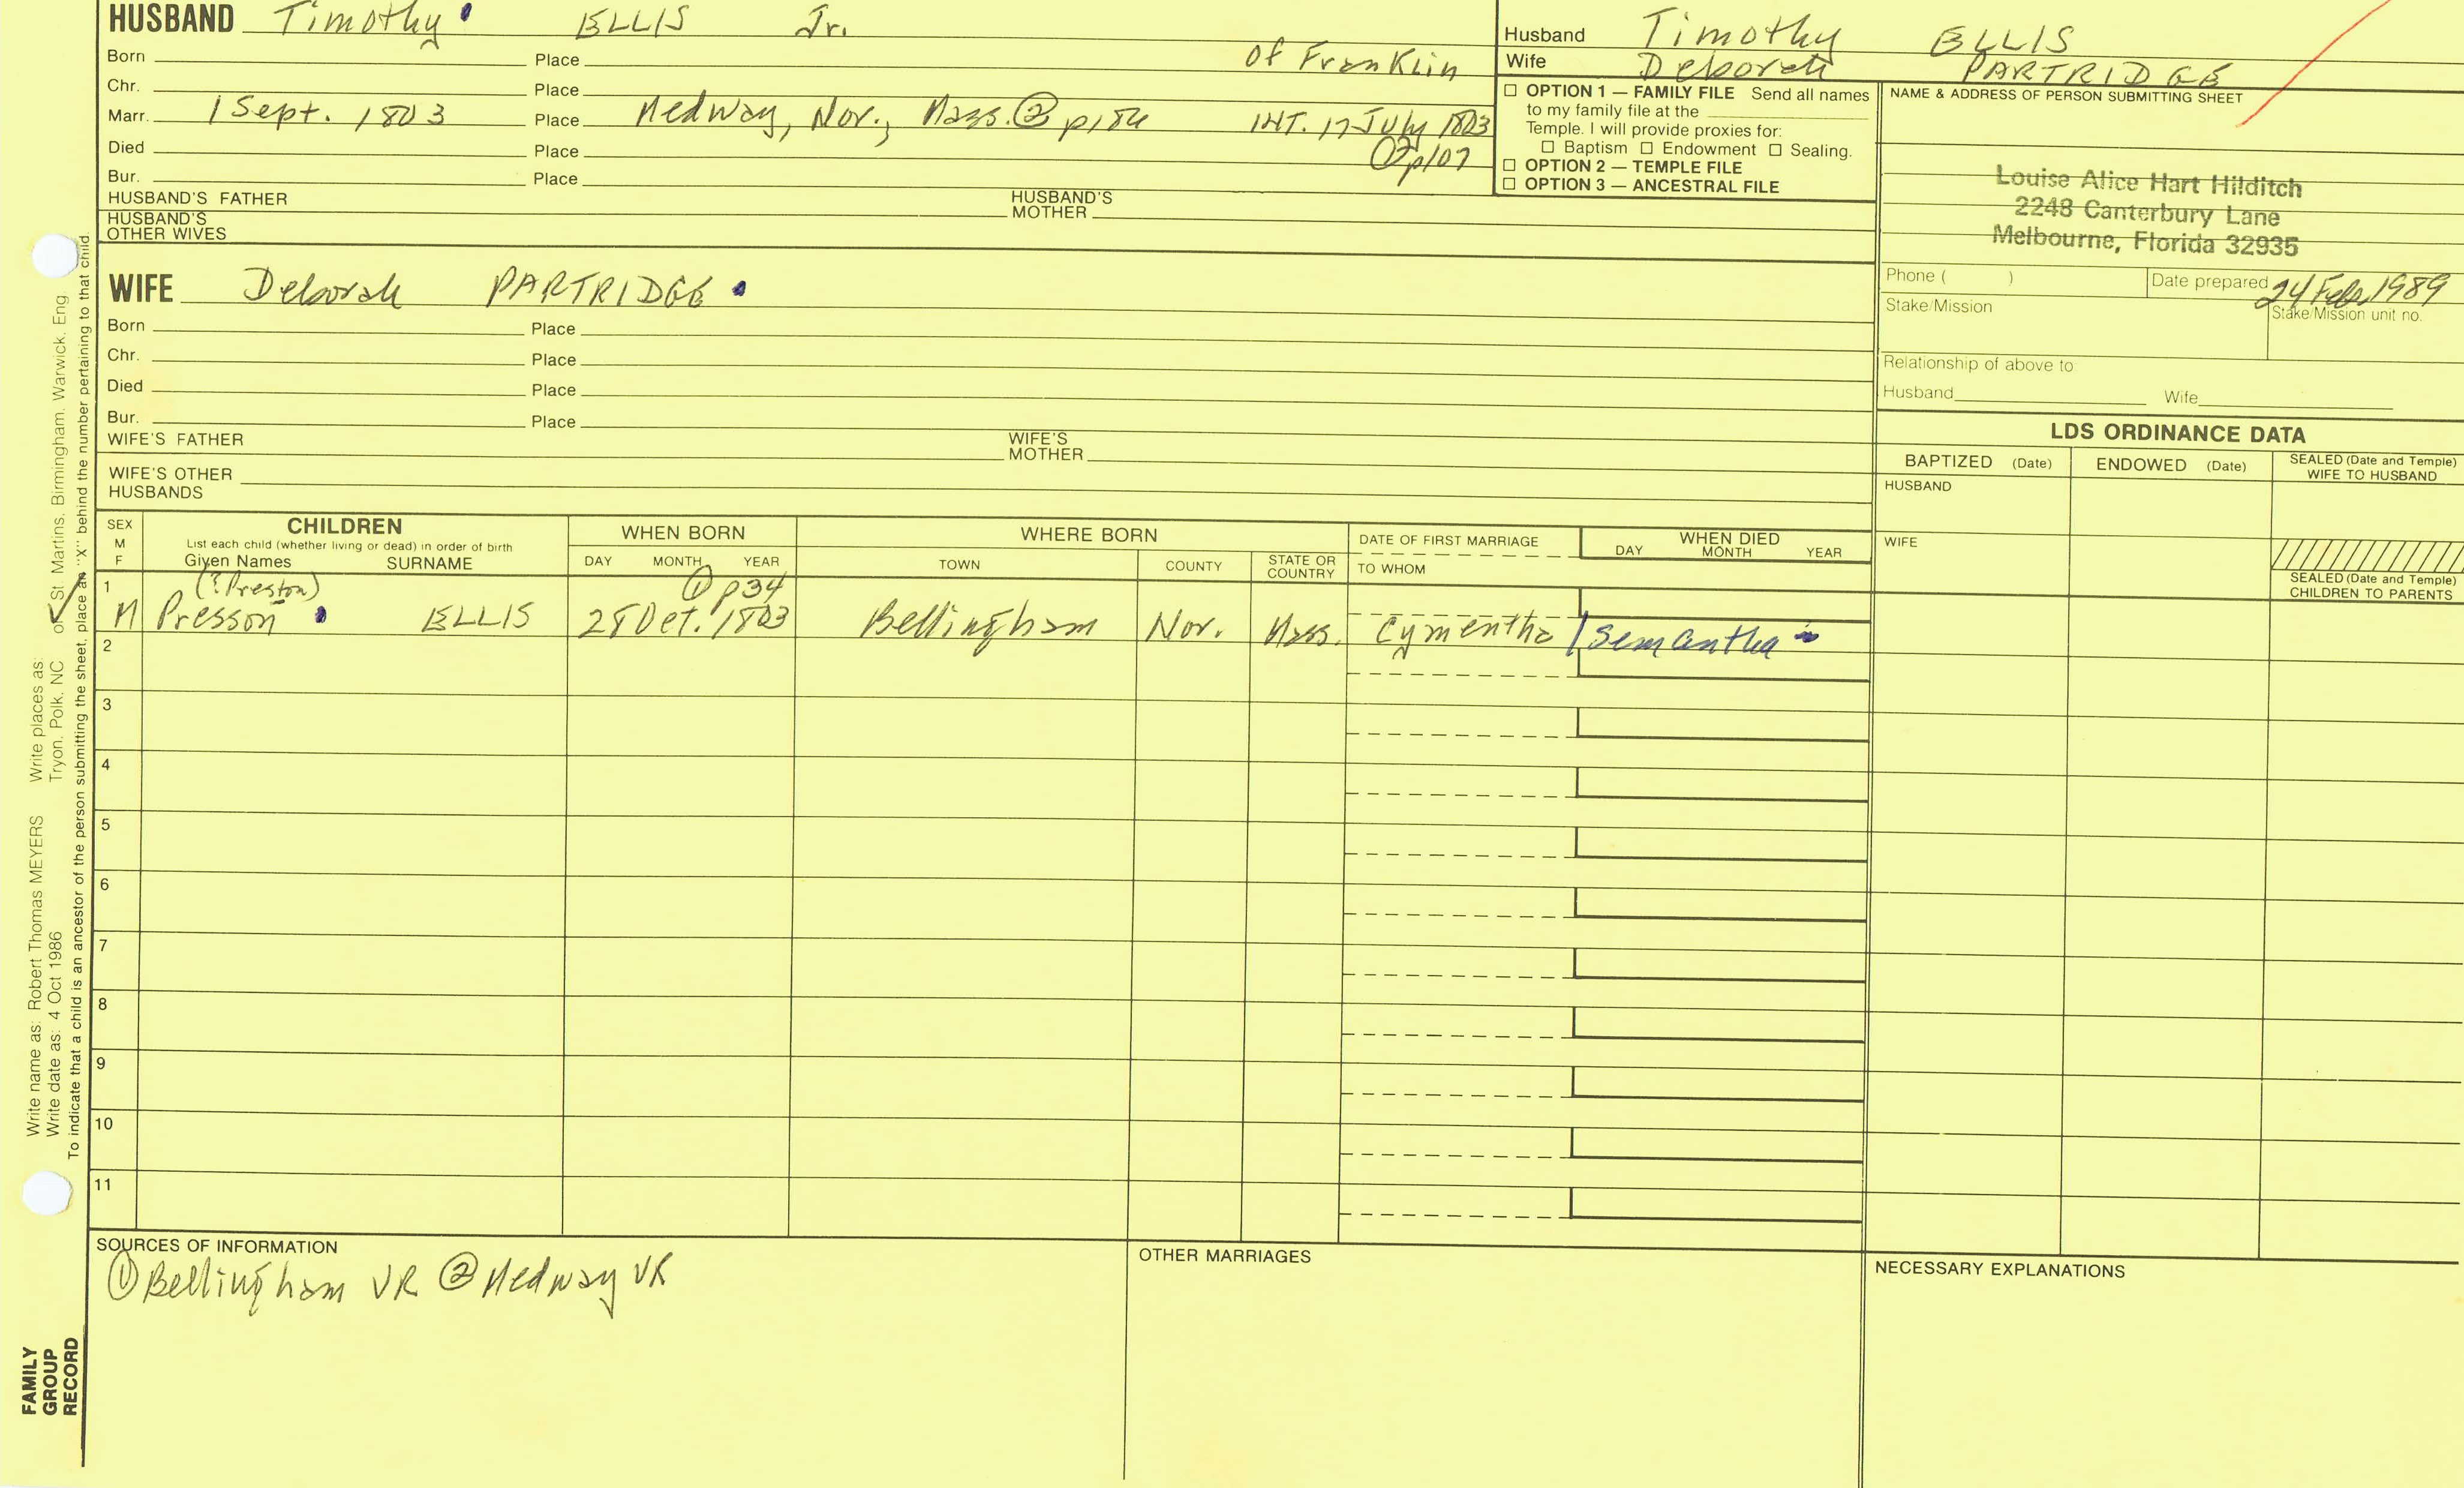 HUSBAND Timothy ELLIS Jr.
Born Place of Franklin
Chr. Place
Marr. 1 Sept. 1803 Place Medway, Nor., Mass. ② p184 INT. 17 July 1803
① p107
Died Place
Bur. Place
HUSBAND'S FATHER HUSBAND'S MOTHER
HUSBAND'S OTHER WIVES
WIFE Deborah PARTRIDGE
Born Place
Chr. Place
Died Place
Bur. Place
WIFE'S FATHER WIFE'S MOTHER
WIFE'S OTHER HUSBANDS
Husband Timothy ELLIS
Wife Deborah PARTRIDGE
☐ OPTION 1 — FAMILY FILE Send all names
to my family file at the
Temple. I will provide proxies for:
☐ Baptism ☐ Endowment ☐ Sealing.
☐ OPTION 2 — TEMPLE FILE
☐ OPTION 3 — ANCESTRAL FILE
NAME & ADDRESS OF PERSON SUBMITTING SHEET
Louise Alice Hart Hilditch
2248 Canterbury Lane
Melbourne, Florida 32935
Phone ( ) Date prepared 24 Feb, 1989
Stake/Mission Stake/Mission unit no.
Relationship of above to
Husband Wife
LDS ORDINANCE DATA
BAPTIZED (Date) ENDOWED (Date) SEALED (Date and Temple) WIFE TO HUSBAND
HUSBAND
WIFE
SEALED (Date and Temple)
CHILDREN TO PARENTS
SEX M F
CHILDREN
List each child (whether living or dead) in order of birth
Given Names SURNAME
WHEN BORN
DAY MONTH YEAR
WHERE BORN
TOWN COUNTY STATE OR COUNTRY
DATE OF FIRST MARRIAGE
TO WHOM
WHEN DIED
DAY MONTH YEAR
1 (? Preston) ① p34
M Presson ELLIS 28 Oct. 1803 Bellingham Nor. Mass. Cymentha / Semantha
2
3
4
5
6
7
8
9
10
11
SOURCES OF INFORMATION
① Bellingham VR ② Medway VR
OTHER MARRIAGES
NECESSARY EXPLANATIONS
Write name as: Robert Thomas MEYERS Write places as:
Write date as: 4 Oct 1986 Tryon, Polk, NC or St. Martins, Birmingham, Warwick, Eng.
To indicate that a child is an ancestor of the person submitting the sheet, place an "X" behind the number pertaining to that child.
FAMILY
GROUP
RECORD